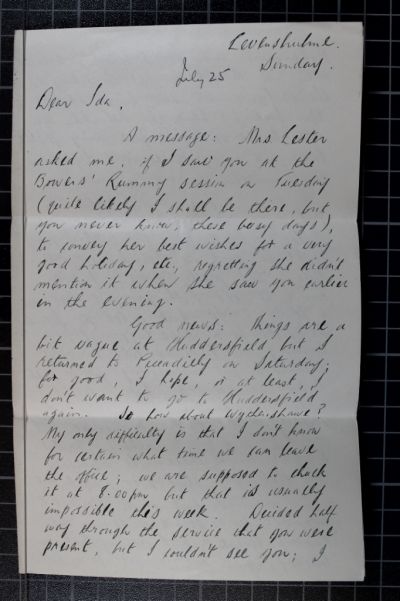 Levenshulme.
Sunday.
July 25
Dear Ida,
A message: Mrs. Lester
asked me, if I saw you at the
Bowers' Rummy session on Tuesday
(quite likely I shall be there, but
you never know, these busy days),
to convey her best wishes for a very
good holiday, etc, regretting she didn't
mention it when she saw you earlier
in the evening.
Good news: things are a
bit vague at Huddersfield but I
returned to Piccadilly on Saturday;
for good, I hope, or at least, I
don't want to go to Huddersfield
again. So how about Wythenshawe?
My only difficulty is that I don't know
for certain what time we can leave
the office; we are supposed to chuck
it at 8.00pm but that is usually
impossible this week. Decided half
way through the service that you were
present, but I couldn't see you; I